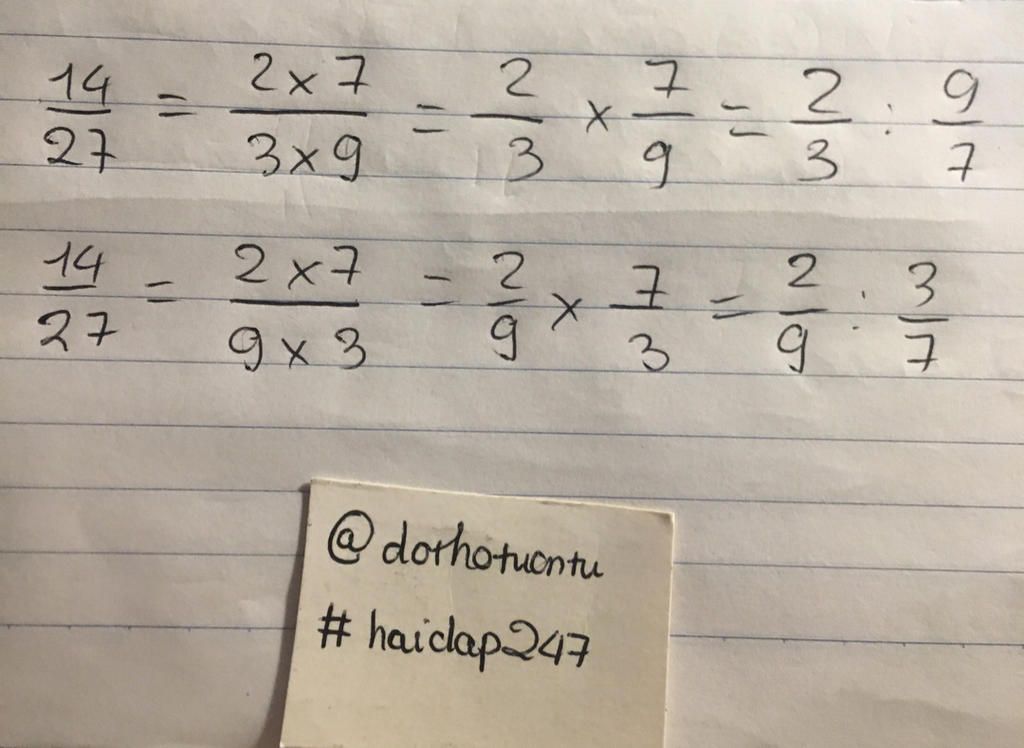 14/27 = (2 x 7)/(3 x 9) = 2/3 x 7/9 = 2/3 : 9/7
14/27 = (2 x 7)/(9 x 3) = 2/9 x 7/3 = 2/9 : 3/7
@dorhotuontu
# haidap247